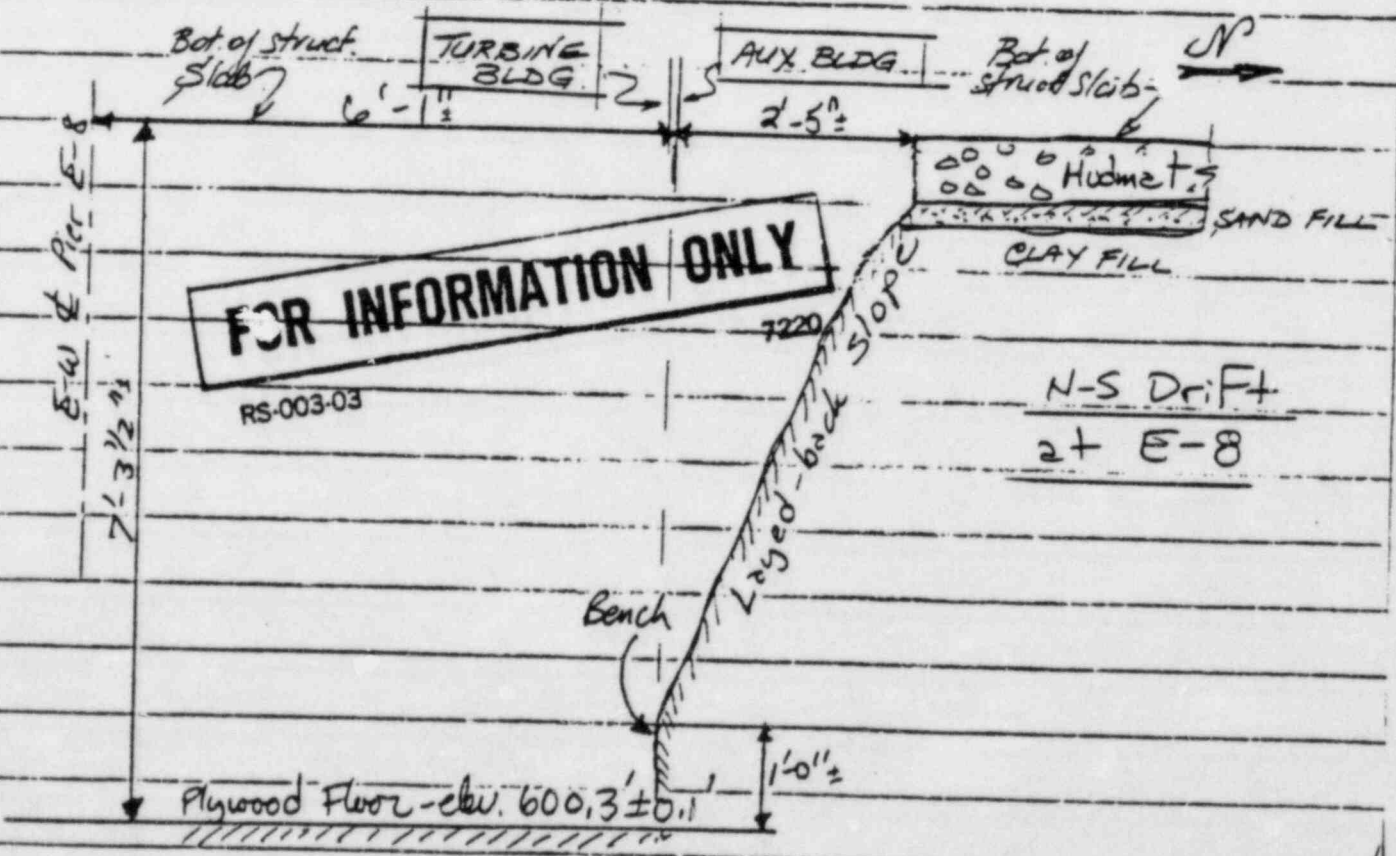 Bot. of struct.
Slab
TURBINE
BLDG.
AUX. BLDG
Bot. of
struct slab
N
6'-1"±
2'-5"±
E-W ℄ Pier E-8
7'-3 1/2"±
Hudmat
SAND FILL
CLAY FILL
FOR INFORMATION ONLY
7220
RS-003-03
Layed-back slope
N-S Drift
at E-8
Bench
1'-0"±
Plywood Floor-elev. 600.3'±0.1'